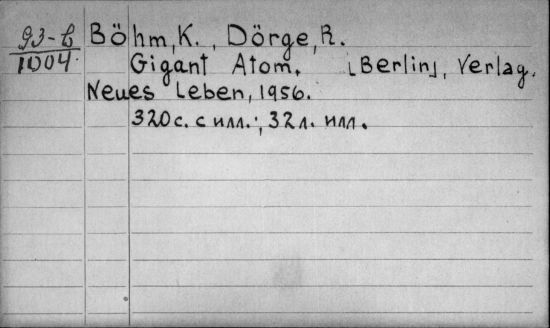 93-b
1004.
Böhm, K., Dörge, R.
Gigant Atom. [Berlin], Verlag.
Neues Leben, 1956.
320 с. с илл.; 32 л. илл.